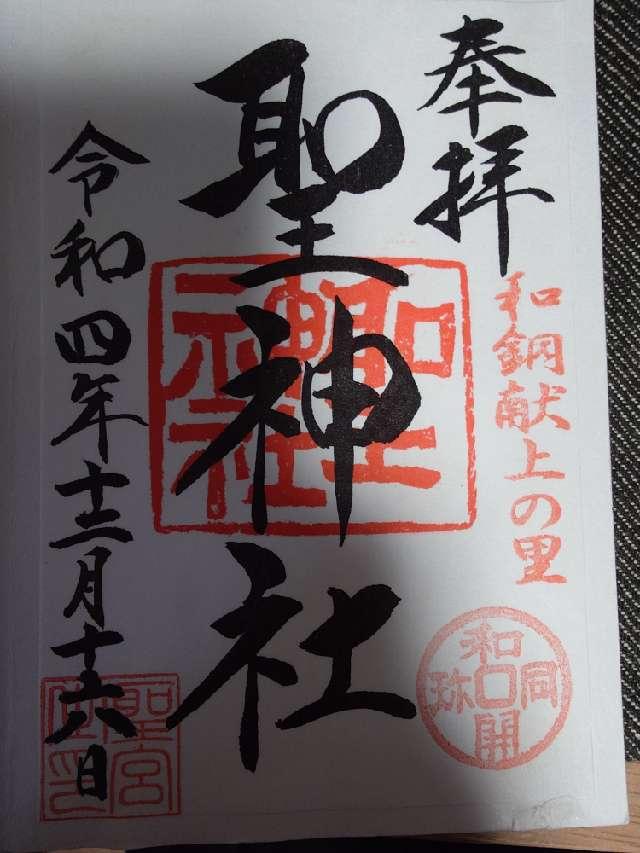 奉拝
和銅献上の里
和同開珎
聖神社
聖神社
令和四年十二月十六日